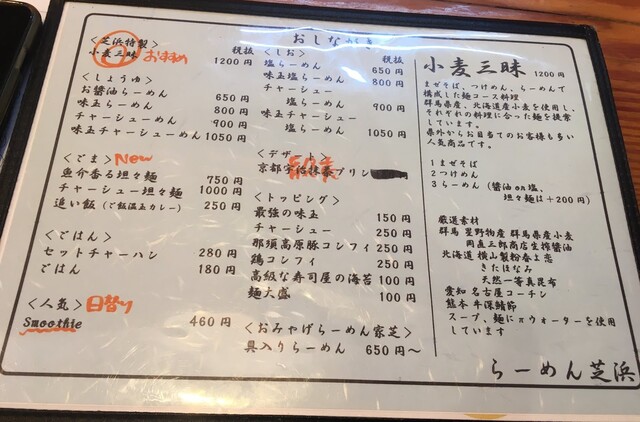 おしながき
〈芝浜特製〉 税抜
小麦三昧 おすすめ 1200円
〈しょうゆ〉
お醤油らーめん 650円
味玉らーめん 800円
チャーシューめん 900円
味玉チャーシューめん 1050円
〈ごま〉 New
魚介香る坦々麺 750円
チャーシュー坦々麺 1000円
追い飯（ご飯温玉カレー） 250円
〈ごはん〉
セットチャーハン 280円
ごはん 180円
〈人気〉 日替り
Smoothie 460円
〈しお〉 税抜
塩らーめん 650円
味玉塩らーめん 800円
チャーシュー
塩らーめん 900円
味玉チャーシュー
塩らーめん 1050円
〈デザート〉
京都宇治抹茶プリン
〈トッピング〉
最強の味玉 150円
チャーシュー 250円
那須高原豚コンフィ 250円
鶏コンフィ 250円
高級な寿司屋の海苔 100円
麺大盛 100円
〈おみやげらーめん家芝〉
具入りらーめん 650円～
小麦三昧 1200円
まぜそば、つけめん、らーめんで
構成した麺コース料理
群馬県産、北海道産小麦を使用し、
それぞれの料理に合った麺を提案
しています。
県外からお目当てのお客様も多い
人気商品です。
1 まぜそば
2 つけめん
3 らーめん（醤油on塩、
坦々麺は＋200円）
厳選素材
群馬 星野物産 群馬県産小麦
岡直三郎商店生搾醤油
北海道 横山製粉春よ恋
きたほなみ
天然一等真昆布
愛知 名古屋コーチン
熊本 牛深鯖節
スープ、麺にπウォーターを使用
しています
らーめん芝浜